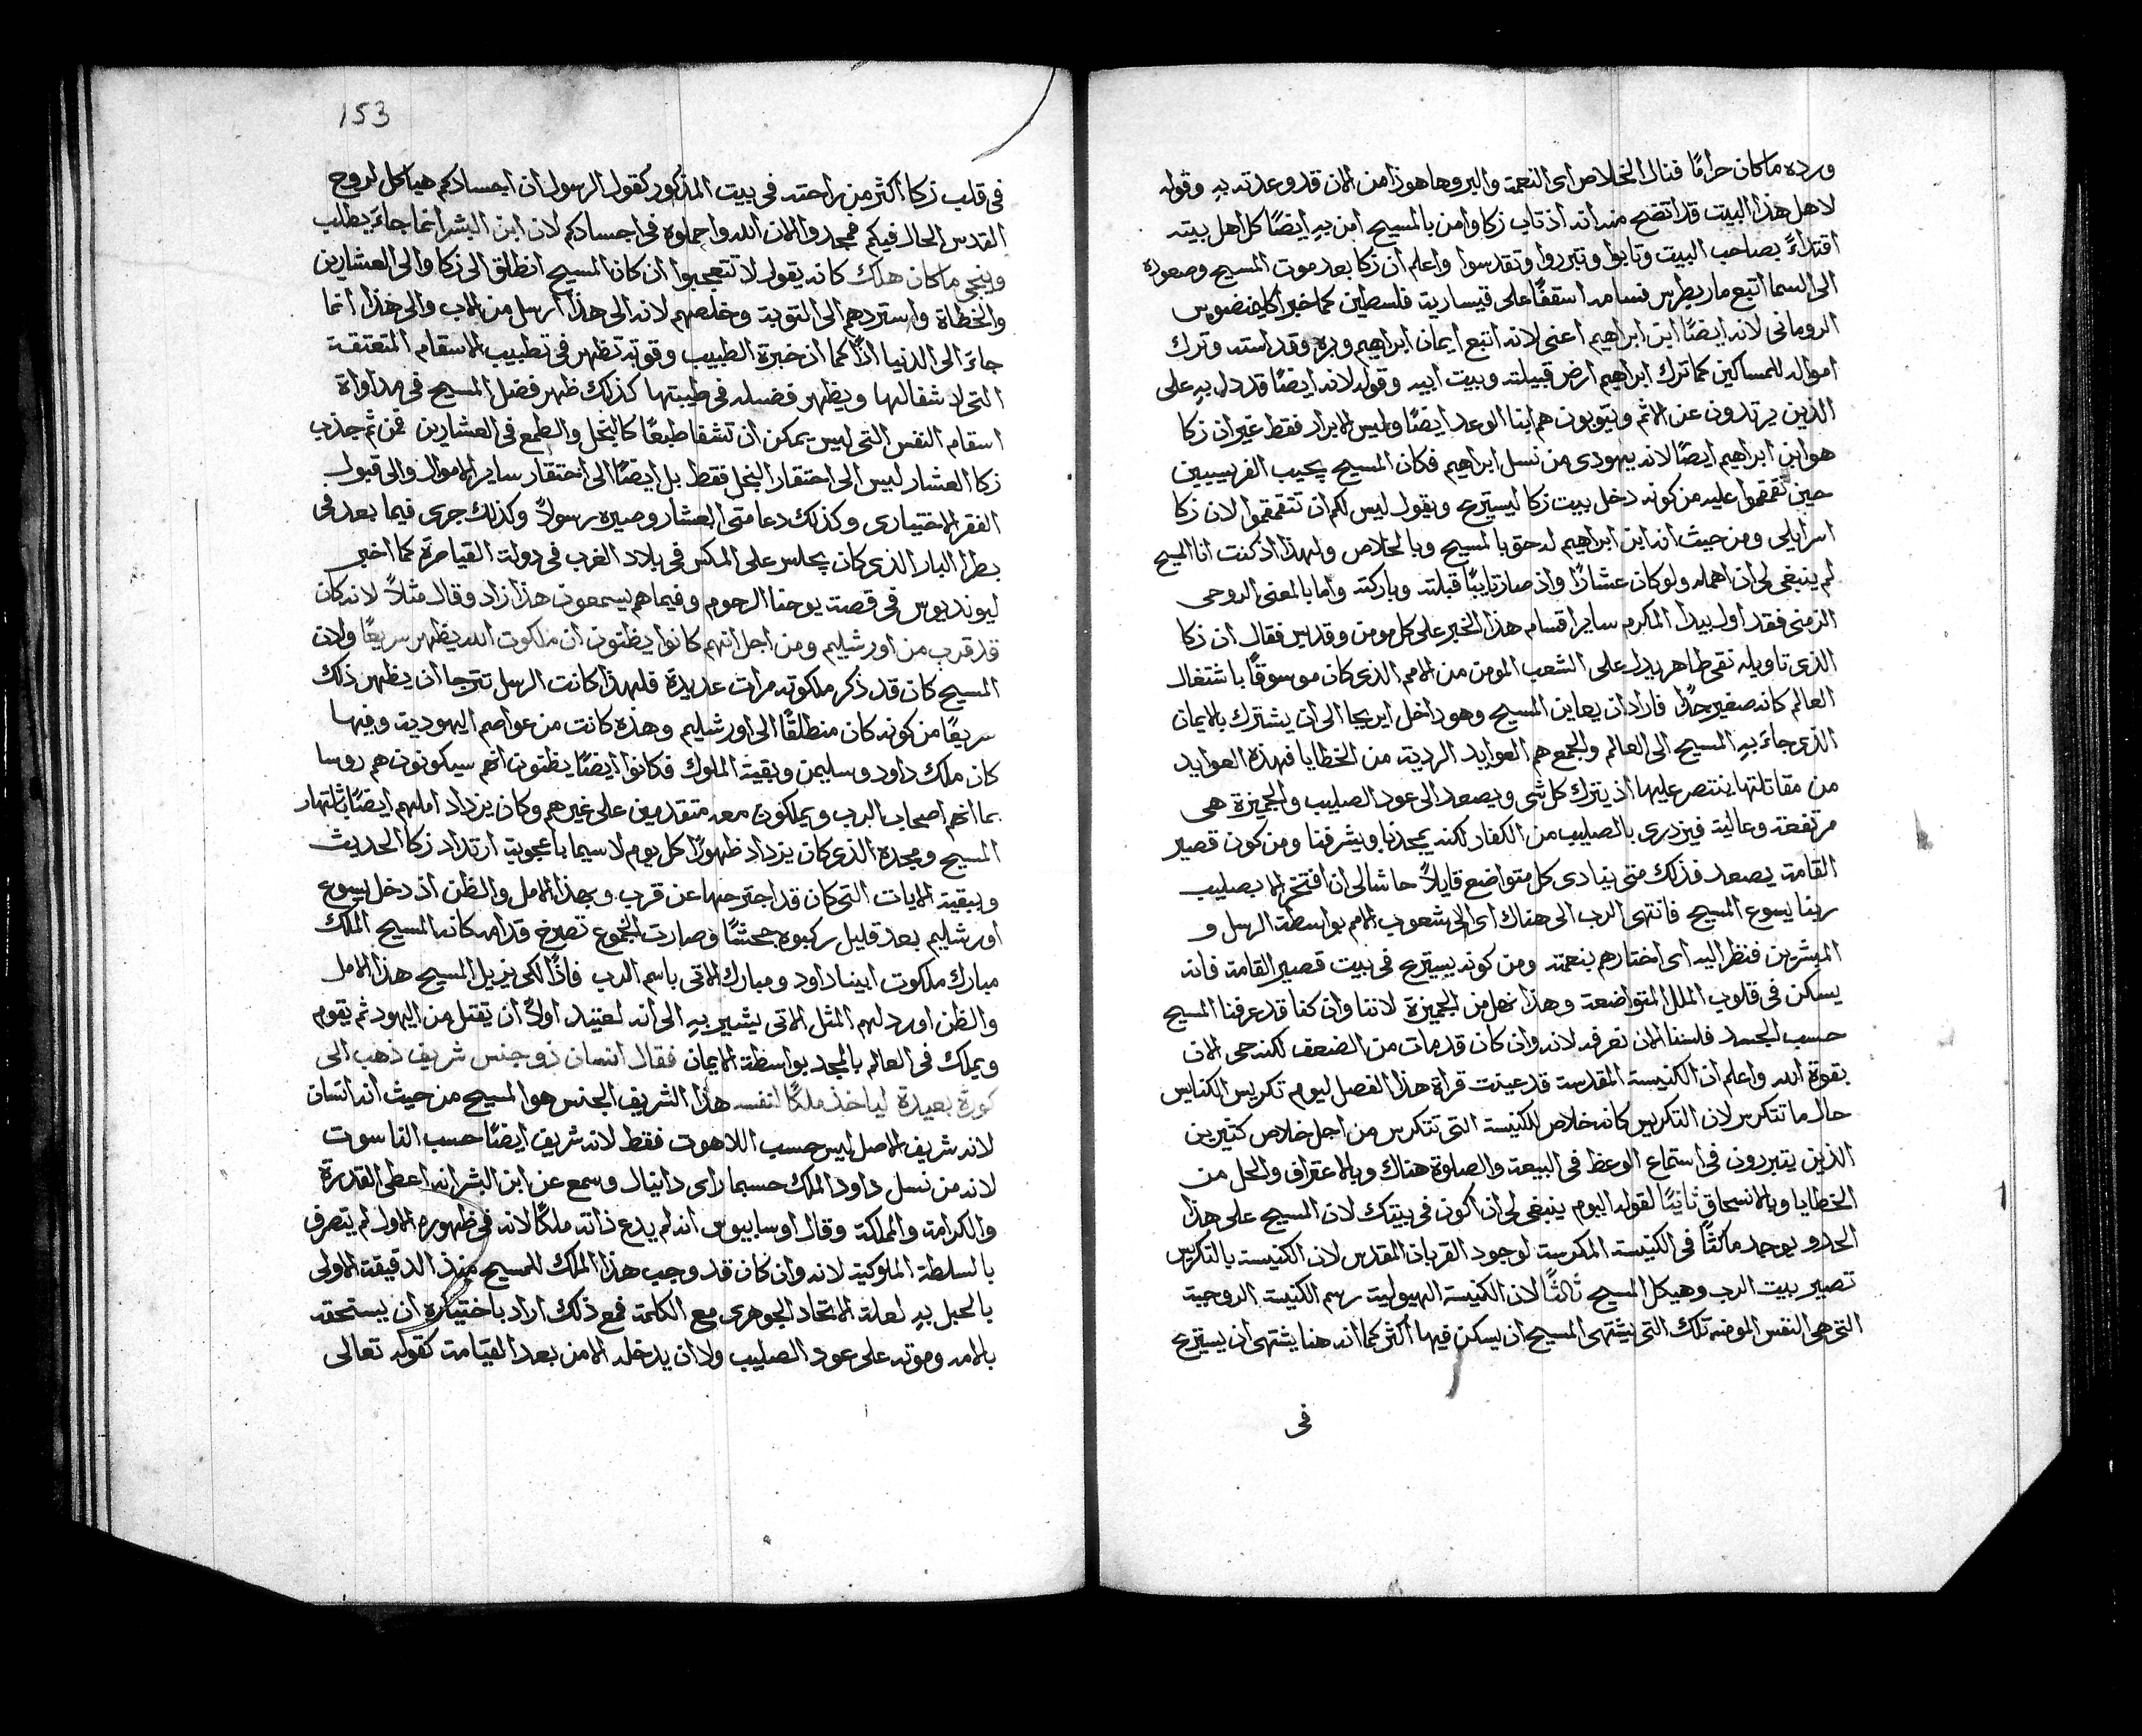 ورده ما كان حرامًا فنال الخلاص اى النعمة والبر وها هوذا من الان قد وعدته به وقوله
لاهل هذا البيت قد اتضح منه انه اذ تاب زكا وامن بالمسيح امن به ايضًا كل اهل بيته
اقتداءً بصاحب البيت وتابوا وتبرروا وتقدسوا واعلم ان زكا بعد موت المسيح وصعوده
الى السما اتبع مار بطرس فسامه اسقفًا على قيسارية فلسطين كما خبر اكليمنضوس
الرومانى لانه ايضًا ابن ابراهيم اعنى لانه اتبع ايمان ابراهيم وبره وقداسته وترك
امواله للمساكين كما ترك ابراهيم ارض قبيلته وبيت ابيه وقوله لانه ايضًا قد دل به على
الذين يرتدون عن الاثم ويتوبون هم ابنا الوعد ايضًا وليس الابرار فقط غير ان زكا
هو ابن ابراهيم ايضًا لانه يهودى من نسل ابراهيم فكان المسيح يجيب الفريسيين
حين تقمقموا عليه من كونه دخل بيت زكا ليستريح ويقول ليس لكم ان تتقمقموا لان زكا
اسرايلى ومن حيث انه ابن ابراهيم له حق بالمسيح وبالخلاص ولهذا اذ كنت انا المسيح
لم ينبغى لى ان اهمله ولو كان عشارًا واذ صار تايبًا قبلته وباركته واما بالمعنى الروحى
الرمزى فقد اول بيدا المكرم ساير اقسام هذا الخبر على كل مومن وقديس فقال ان زكا
الذى تاويله نقى طاهر يدل على الشعب المومن من الامم الذى كان موسوقًا باشتغال
العالم كانه صغير جدًا فاراد ان يعاين المسيح وهو داخل ايريحا الى ان يشترك بالايمان
الذى جاء به المسيح الى العالم والجمع هم العوايد الردية من الخطايا فهذه العوايد
من مقاتلتها ينتصر عليها اذ يترك كل شى ويصعد الى عود الصليب والجميزة هى
مرتفعة وعالية فيزدرى بالصليب من الكفار لكنه يمجدنا ويشرفنا ومن كون قصير
القامة يصعد فذلك متى ينادى كل متواضع قايلاً حاشا لى ان افتخر الا بصليب
ربنا يسوع المسيح فانتهى الرب الى هناك اى الى شعوب الامم بواسطة الرسل و
المبشرين فنظر اليه اى اختارهم بنعمته ومن كونه يستريح فى بيت قصير القامة فانه
يسكن فى قلوب الملل المتواضعة وهذا نهل من الجميزة لاننا وان كنا قد عرفنا المسيح
حسب الجسد فلسنا الان نعرفه لانه وان كان قد مات من الضعف لكنه حى الان
بقوة الله واعلم ان الكنيسة المقدسة قد عينت قراة هذا الفصل ليوم تكريس الكنايس
حال ما تتكرس لان التكريس كانه خلاص للكنيسة التى تتكرس من اجل خلاص كثيرين
الذين يتبررون فى استماع الوعظ فى البيعة والصلوة هناك وبالاعتراف والحل من
الخطايا وبالانسحاق ثانيًا لقوله اليوم ينبغى لى ان اكون فى بيتك لان المسيح على هذا
الحد يوجد ماكثًا فى الكنيسة المكرسة لوجود القربان المقدس لان الكنيسة بالتكريس
تصير بيت الرب وهيكل المسيح ثالثًا لان الكنيسة الهيولية رسم الكنيسة الروحية
التى هى النفس المومنة تلك التى يشتهى المسيح ان يسكن فيها اكثر كما انه هنا يشتهى ان يستريح
فى
153
فى قلب زكا اكثر من راحته فى بيت المذكور كقول الرسول ان اجسادكم هياكل لروح
القدس الحال فيكم فمجدوا الان الله واحملوه فى اجسادكم لان ابن البشر انما جاء يطلب
وينجى ما كان هلك كانه يقول لا تتعجبوا ان كان المسيح انطلق الى زكا والى العشارين
والخطاة واستردهم الى التوبة وخلصهم لانه الى هذا ارسل من الاب والى هذا انما
جاء الى الدنيا اذًا كما ان خبرة الطبيب وقوته تظهر فى تطبيب الاسقام المتعتقة
التى لا شفا لها ويظهر فضله فى طيبتها كذلك ظهر فضل المسيح فى مداواة
اسقام النفس التى ليس يمكن ان تشفا طبعًا كالبخل والطمع فى العشارين فمن ثم جذب
زكا العشار ليس الى احتقار البخل فقط بل ايضًا الى احتقار ساير الاموال والى قبول
الفقر الاختيارى وكذلك دعا متى العشار وصيره رسولاً وكذلك جرى فيما بعد فى
بطرا البار الذى كان يجلس على المكس فى بلاد الغرب فى دولة القياصرة كما اخبر
ليونديوس فى قصة يوحنا الرحوم وفيما هم يسمعون هذا زاد وقال مثلاً لانه كان
قد قرب من اورشليم ومن اجل انهم كانوا يظنون ان ملكوت الله يظهر سريعًا ولان
المسيح كان قد ذكر ملكوته مرات عديدة فلهذا كانت الرسل تترجا ان يظهر ذلك
سريعًا من كونه كان منطلقًا الى اورشليم وهذه كانت من عواصم اليهودية وفيها
كان ملك داود وسليمن وبقية الملوك فكانوا ايضًا يظنون انهم سيكونون هم روسا
بما انهم اصحاب الرب ويملكون معه متقدمين على غيرهم وكان يزداد املهم ايضًا باشتهار
المسيح ومجده الذى كان يزداد ظهورًا كل يوم لاسيما باعجوبة ارتداد زكا الحديث
وببقية الايات التى كان قد اجترحها عن قرب وبهذا الامل والظن اذ دخل يسوع
اورشليم بعد قليل ركبوه جحشًا وصارت الجموع تصرخ قدامه كانه المسيح الملك
مبارك ملكوت ابينا داود ومبارك الاتى باسم الرب فاذًا لكى يزيل المسيح هذا الامل
والظن اورد لهم المثل الاتى يشير به الى انه لعتيد اولاً ان يقتل من اليهود ثم يقوم
ويملك فى العالم بالمجد بواسطة الايمان فقال انسان ذو جنس شريف ذهب الى
كورة بعيدة لياخذ ملكًا لنفسه هذا الشريف الجنس هو المسيح من حيث انه انسان
لانه شريف الاصل ليس حسب اللاهوت فقط لانه شريف ايضًا حسب الناسوت
لانه من نسل داود الملك حسبما راى دانيال وسمع عن ابن البشر انه اعطى القدرة
والكرامة والمملكة وقال اوسابيوس انه لم يدع ذاته ملكًا لانه فى ظهوره الاول لم يتصرف
بالسلطة الملوكية لانه وان كان قد وجب هذا الملك للمسيح منذ الدقيقة الاولى
بالحبل به لعلة الاتحاد الجوهرى مع الكلمة فمع ذلك اراد باختياره ان يستحقه
بالامه وموته على عود الصليب ولا ان يدخله الا من بعد القيامة كقوله تعالى